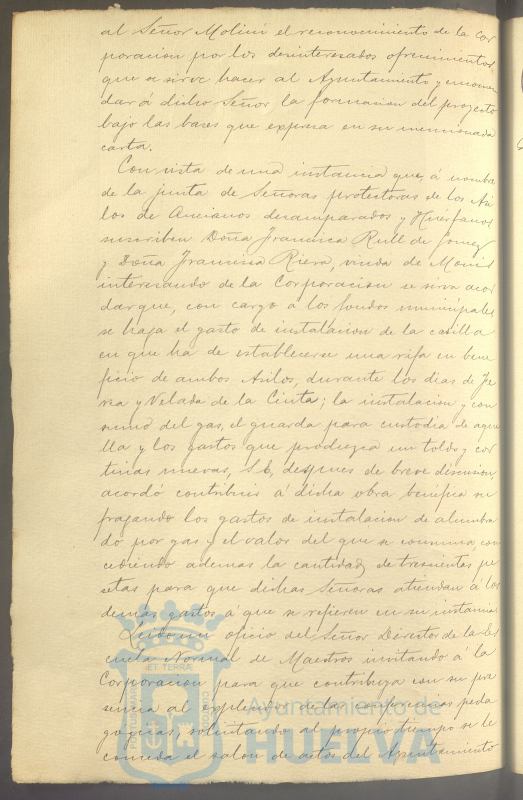 al Señor Molini el reconocimiento de la Cor
poracion por los desinteresados ofrecimientos
que se sirve hacer al Ayuntamiento y encomen
dar á dicho Señor la formacion del proyecto
bajo las bases que expresa en su mencionada
carta.
Con vista de una instancia que, á nombre
de la junta de Señoras protectoras de los Asi
los de Ancianos desamparados y Huerfanos
suscriben Doña Francisca Rull de Gomez
y Doña Francisca Riera, viuda de
interesando de la Corporacion se sirva acor
dar que, con cargo á los fondos municipales
se haga el gasto de instalacion de la casilla
en que ha de establecerse una rifa en bene
ficio de ambos Asilos, durante los dias de Fe
ria y Velada de la Cinta; la instalacion y con
sumo del gas, el guarda para custodia de aque
lla y los gastos que produzca un toldo y cor
tinas nuevas, S.E, despues de breve discusion,
acordó contribuir á dicha obra benéfica su
fragando los gastos de instalacion de alumbra
do por gas y el valor del que se consuma, con
cediendo ademas la cantidad de trescientas pe
setas para que dichas Señoras atiendan á los
demas gastos á que se refieren en su instancia
Leido un oficio del Señor Director de la Es
cuela Normal de Maestros invitando á la
Corporacion para que contribuya con su pre
sencia al esplendor de las conferencias peda
gogicas, solicitando al propio tiempo se le
conceda el salon de actos del Ayuntamiento
PORTUS MARIS
ET TERRÆ
CUSTODIA
Ayuntamiento de
HUELVA